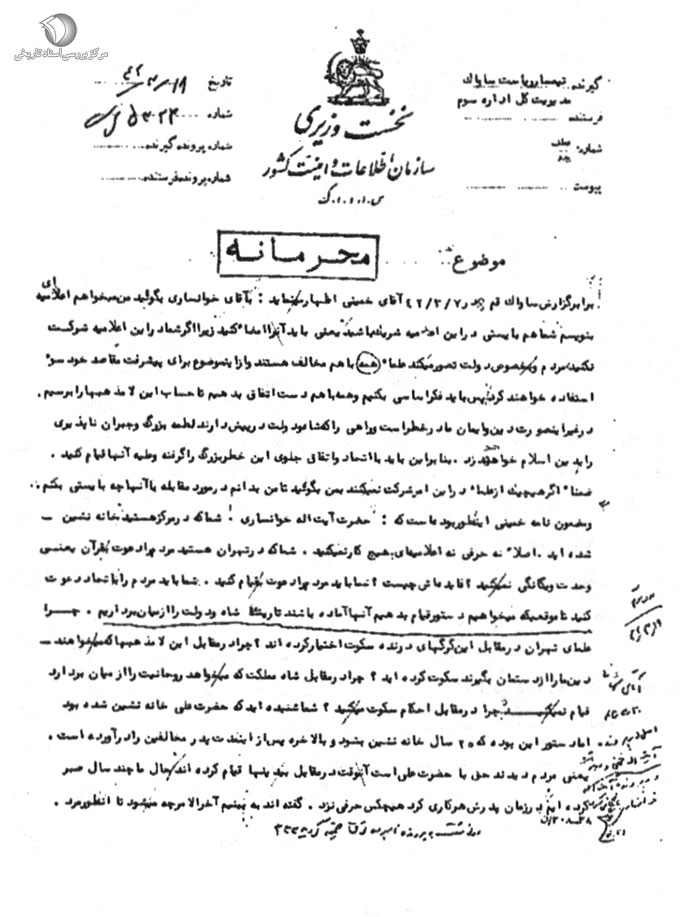 مرکز بررسی اسناد تاریخی
گیرنده: تیمسار ریاست ساواک
مدیریت کل اداره سوم
فرستنده:
شماره:
پیوست
نخست وزیری
سازمان اطلاعات و امنیت کشور
س.ا.و.ا.ک
تاریخ
شماره
شماره پرونده گیرنده:
شماره پرونده فرستنده:
موضوع: محرمانه
برابر گزارش ساواک قم در ۴۲/۳/۷ آقای خمینی اظهار مینماید : بآقای خوانساری بگوئید من میخواهم اعلامیه ای
بنویسم شما هم بایستی در این اعلامیه شریک باشید یعنی باید آنرا امضاء کنید زیرا اگر شما در این اعلامیه شرکت
نکنید مردم و بخصوص دولت تصور میکند علماء همه با هم مخالف هستند و از این موضوع برای پیشرفت مقاصد خود سوء
استفاده خواهند کرد پس باید فکر اساسی بکنیم و همه با هم دست اتفاق بدهیم تا حساب این لامذهبها را برسیم .
در غیر اینصورت دین و ایمان ما در خطر است و راهی را که شاه و دولت در پیش دارند لطمه بزرگ و جبران ناپذیری
را بدین اسلام خواهند زد . بنابراین باید با اتحاد و اتفاق جلوی این خطر بزرگ را گرفته و علیه آنها قیام کنید .
ضمناً اگر هیچیک از علماء در این امر شرکت نمیکنند بمن بگوئید تا من بدانم در مورد مقابله با آنها چه بایستی بکنم .
و مضمون نامه خمینی اینطور بوده است که : حضرت آیت اله خوانساری ! شما که در مرکز هستید خانه نشین -
شده اید . اصلاً نه حرفی نه اعلامیه ای هیچ کار نمیکنید . شما که در تهران هستید مردم را دعوت بقرآن یعنی
وحدت و یگانگی نمیکنید ؟ فایده اش چیست ؟ شما باید مردم را دعوت بقیام کنید . شما باید مردم را باتحاد دعوت
کنید تا موقعیکه میخواهیم دستور قیام بدهیم آنها آماده باشند تا ریشه شاه و دولت را از میان برداریم . چرا
علمای تهران در مقابل این گرگهای درنده سکوت اختیار کرده اند ؟ چرا در مقابل این لامذهبها که میخواهند -
دین ما را از دستمان بگیرند سکوت کرده اید ؟ چرا در مقابل شاه مملکت که میخواهد روحانیت را از میان بردارد
قیام نمیکنید چرا در مقابل احکام سکوت میکنید ؟ شما شنیده اید که حضرت علی خانه نشین شده بود
اما دستور این بوده که ۲۰ سال خانه نشین بشود و بالاخره پس از این مدت پدر مخالفین را درآورده است .
یعنی مردم دیدند حق با حضرت علی است آنوقت در مقابل بیدینها قیام کرده اند حال ما چند سال صبر
کرده ایم در زمان پدرش هر کاری کرد هیچکس حرفی نزد . گفته اند به بینیم آخر الامر چه میشود تا آنطور مرد .